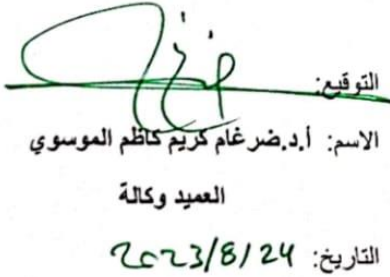 التوقيع:
الاسم: أ.د.ضرغام كريم كاظم الموسوي
العميد وكالة
التاريخ: 2023/8/24